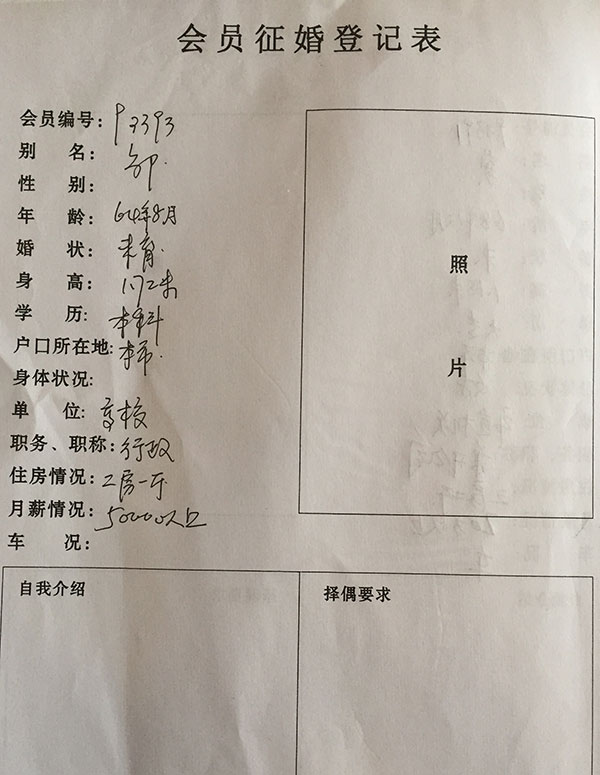 会员征婚登记表
会员编号：P3393
别 名：邹
性 别：
年 龄：64年8月
婚 状：未育
身 高：1.72米
学 历：本科
户口所在地：本市
身体状况：
单 位：高校
职务、职称：行政
住房情况：二房一厅
月薪情况：50000以上
车 况：
照
片
自我介绍
择偶要求